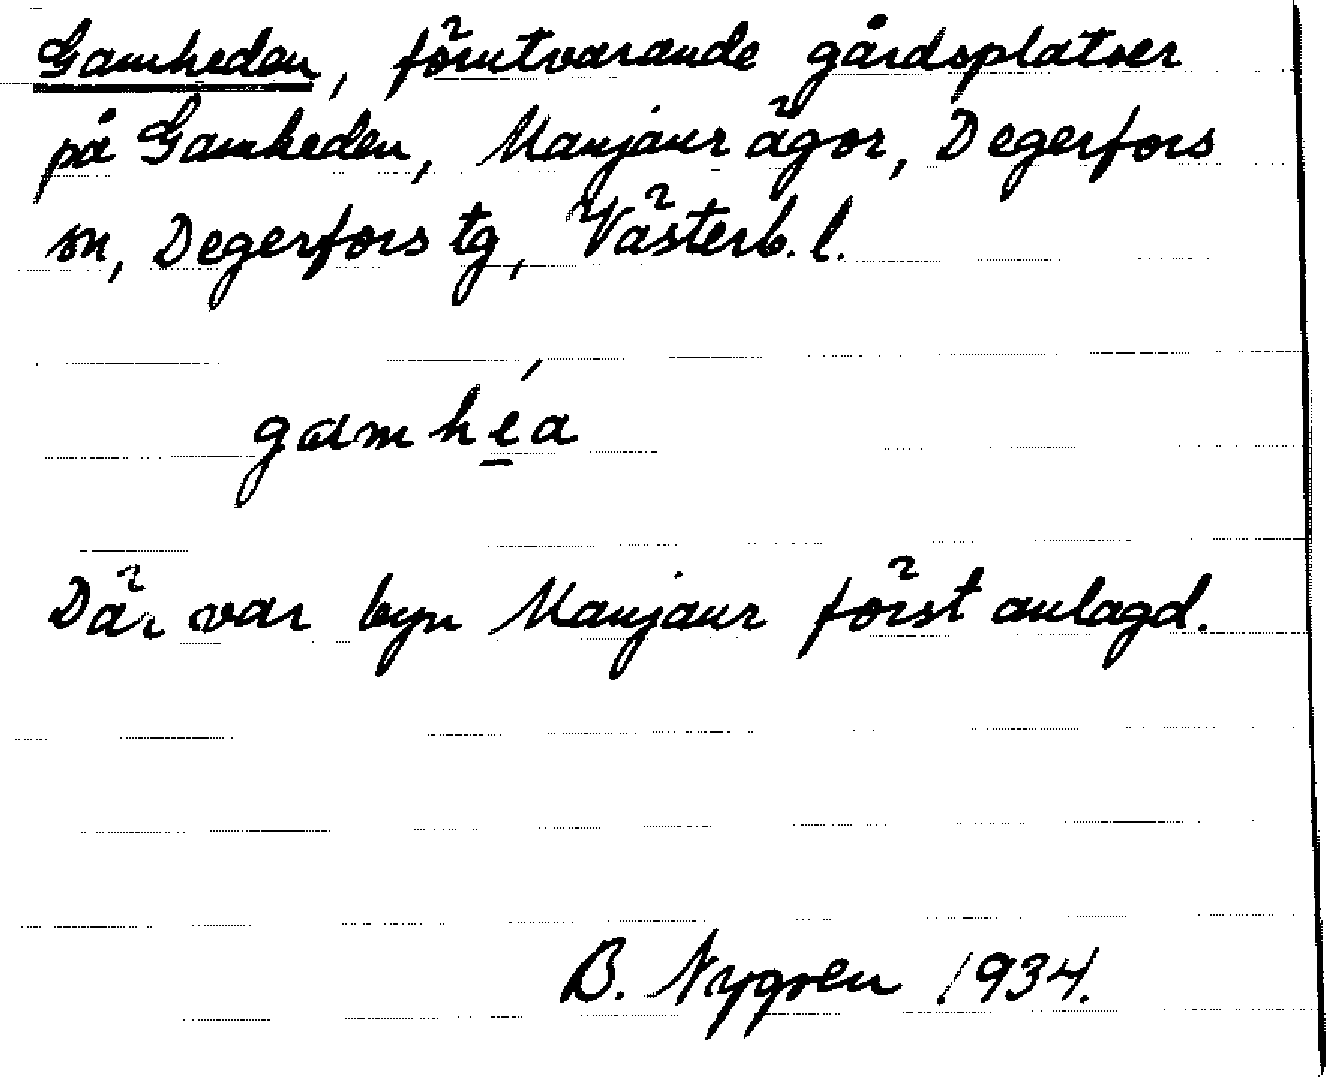 Gamheden, förutvarande gårdsplatser
på Gamheden, Manjaur ägor, Degerfors
sn, Degerfors tg, Västerb. l.
gamhéa
Där var byn Manjaur först anlagd.
B. Nygren 1934.